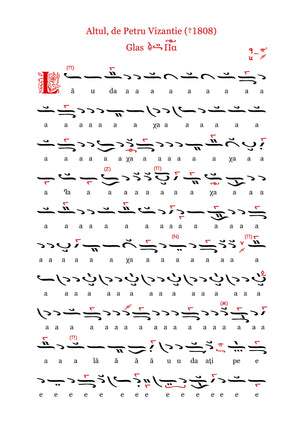 Altul, de Petru Vizantie (†1808)
Glas Πα
(Π)
L ă u da a a a a a a a a a
a a a a a χα a a a a a a
a a a a a a a a a χα a a
(Ζ) (Π)
a a a a a a χα a a a a a
a a a a a a a a a a a a
(Ν) (Π)
a a a a χα a a a a a a a
a a a a a a a a a a a a a
(Ж)
a a a a a a a a a a a a a
(Π)
a a a lă ă ă u u da ați pe e
e e e e e e e e e e e e